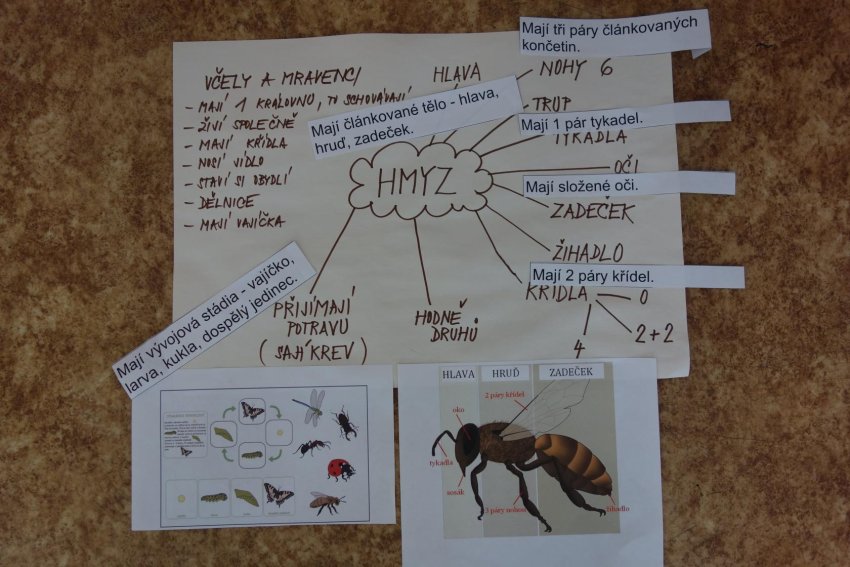 VČELY A MRAVENCI
– MAJÍ 1 KRÁLOVNU, TU SCHOVÁVAJÍ
– ŽIVÍ SPOLEČNĚ
– MAJÍ KŘÍDLA
– NOSÍ JÍDLO
– STAVÍ SI OBYDLÍ
– DĚLNICE
– MAJÍ VAJÍČKA
HLAVA
Mají tři páry článkovaných
končetin.
NOHY 6
Mají článkované tělo - hlava,
hruď, zadeček.
TRUP
Mají 1 pár tykadel.
TYKADLA
HMYZ
OČI
Mají složené oči.
ZADEČEK
ŽIHADLO
Mají 2 páry křídel.
KŘÍDLA
0
2+2
4
HODNĚ
DRUHŮ
PŘIJÍMAJÍ
POTRAVU
(SAJÍ KREV)
Mají vývojová stádia - vajíčko,
larva, kukla, dospělý jedinec.
HLAVA
HRUĎ
ZADEČEK
2 páry křídel
oko
tykadla
sosák
3 páry nohou
žihadlo